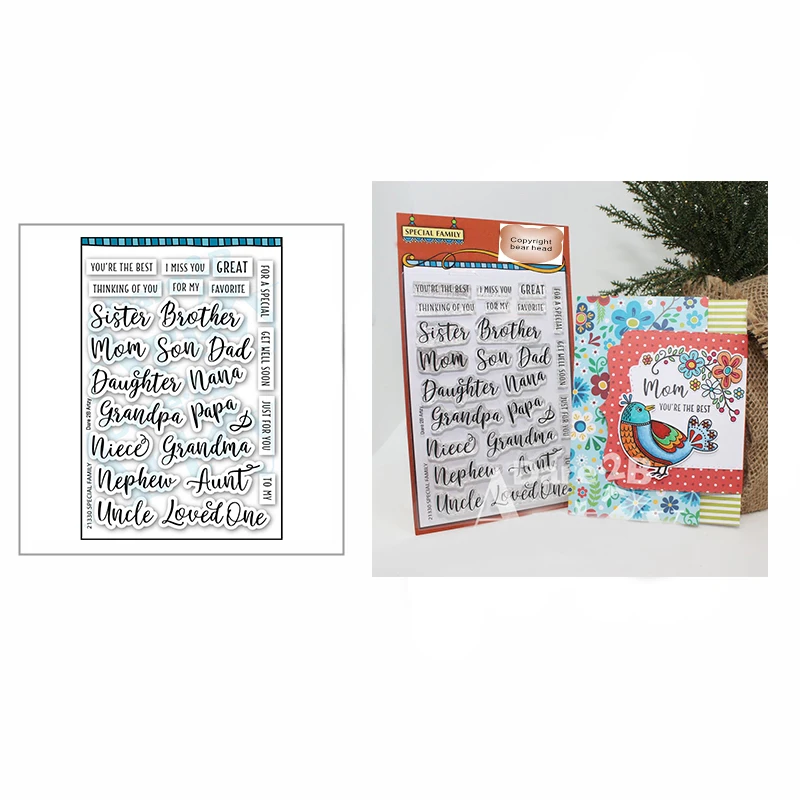 YOU'RE THE BEST I MISS YOU GREAT
THINKING OF YOU FOR MY FAVORITE
Sister Brother
Mom Son Dad
Daughter Nana
Grandpa Papa &
Niece Grandma
Nephew Aunt
Uncle Loved One
FOR A SPECIAL
GET WELL SOON
JUST FOR YOU
TO MY
21330 SPECIAL FAMILY Dare 2B Artzy
SPECIAL FAMILY
Copyright
bear head
YOU'RE THE BEST I MISS YOU GREAT
THINKING OF YOU FOR MY FAVORITE
Sister Brother
Mom Son Dad
Daughter Nana
Grandpa Papa &
Niece Grandma
Nephew Aunt
Uncle Loved One
FOR A SPECIAL
GET WELL SOON
JUST FOR YOU
21330 SPECIAL FAMILY Dare 2B Artzy
Mom
YOU'RE THE BEST